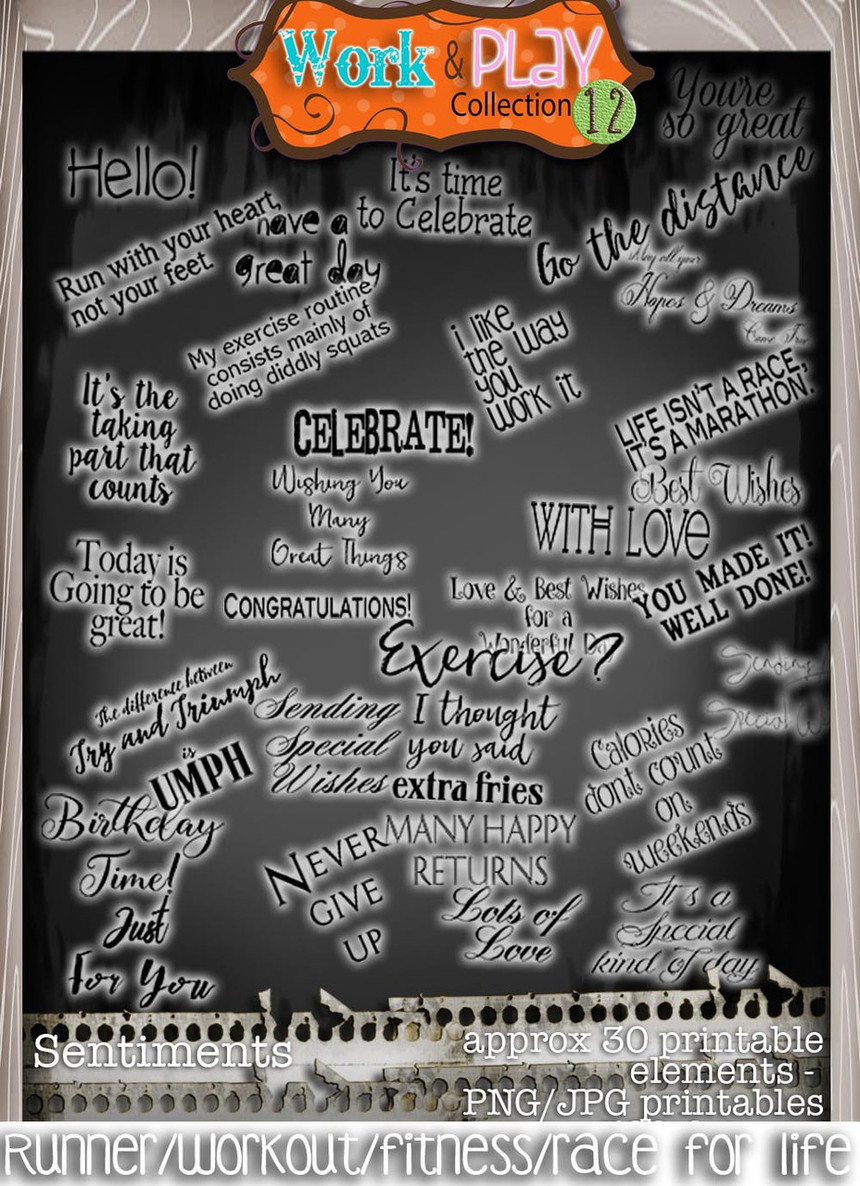 Work & PLAY
Collection 12
You're
so great
Hello!
It's time
to Celebrate
Go the distance
Run with your heart,
not your feet.
have a
great day
May all your
Hopes & Dreams
Come True
My exercise routine
consists mainly of
doing diddly squats
i like
the way
you
work it
It's the
taking
part that
counts
CELEBRATE!
LIFE ISN'T A RACE,
IT'S A MARATHON!
Wishing You
Many
Great Things
Best Wishes
WITH LOVE
Today is
Going to be
great!
CONGRATULATIONS!
Love & Best Wishes
for a
Wonderful Da
YOU MADE IT!
WELL DONE!
Exercise?
I thought
you said
extra fries
Sending
Special W
The difference between
Try and Triumph
is
UMPH
Sending
Special
Wishes
Calories
dont count
on
weekends
Birthday
Time!
NEVER
GIVE
UP
MANY HAPPY
RETURNS
Just
For You
Lots of
Love
It's a
Special
kind of day
Sentiments
approx 30 printable
elements -
PNG/JPG printables
Runner/workout/fitness/race for life